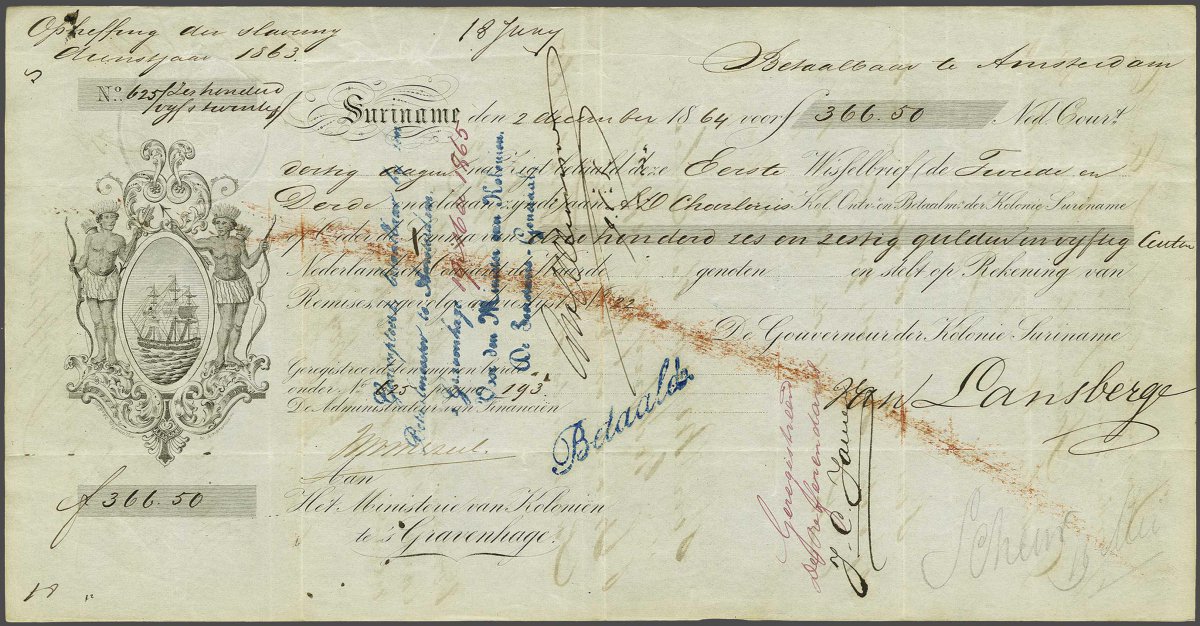 Opheffing der slaverny
Dienstjaar 1863.
18 Juny
Betaalbaar te Amsterdam
No. 625/Zes honderd
vyf & twintig/
Suriname den 2 december 1864 voor f 366.50 Ned. Cour.t
dertig dagen na zigt betaald deze Eerste Wisselbrief (de Tweede en
Derde niet betaald zynde) aan Kol. Ontv- en Betaalmr. der Kolonie Suriname
of order de somma van drie honderd zes en zestig gulden en vyftig Centen
Nederlandsch Courant, de waarde genoten en stelt op Rekening van
Remises, ingevolge advieslyst No.
De Gouverneur der Kolonie Suriname
Geregistreerd
onder No. 625 193
De Administrateur van Financiën
Van Lansberge
Aan
Het Ministerie van Koloniën
te 's Gravenhage.
f 366.50
Geaccepteerd betaalbaar
Betaalmeester te Amsterdam.
's Gravenhage 1865
Voor den Minister van Koloniën.
De Secretaris-Generaal
Betaald
Geregistreerd
De Referendaris